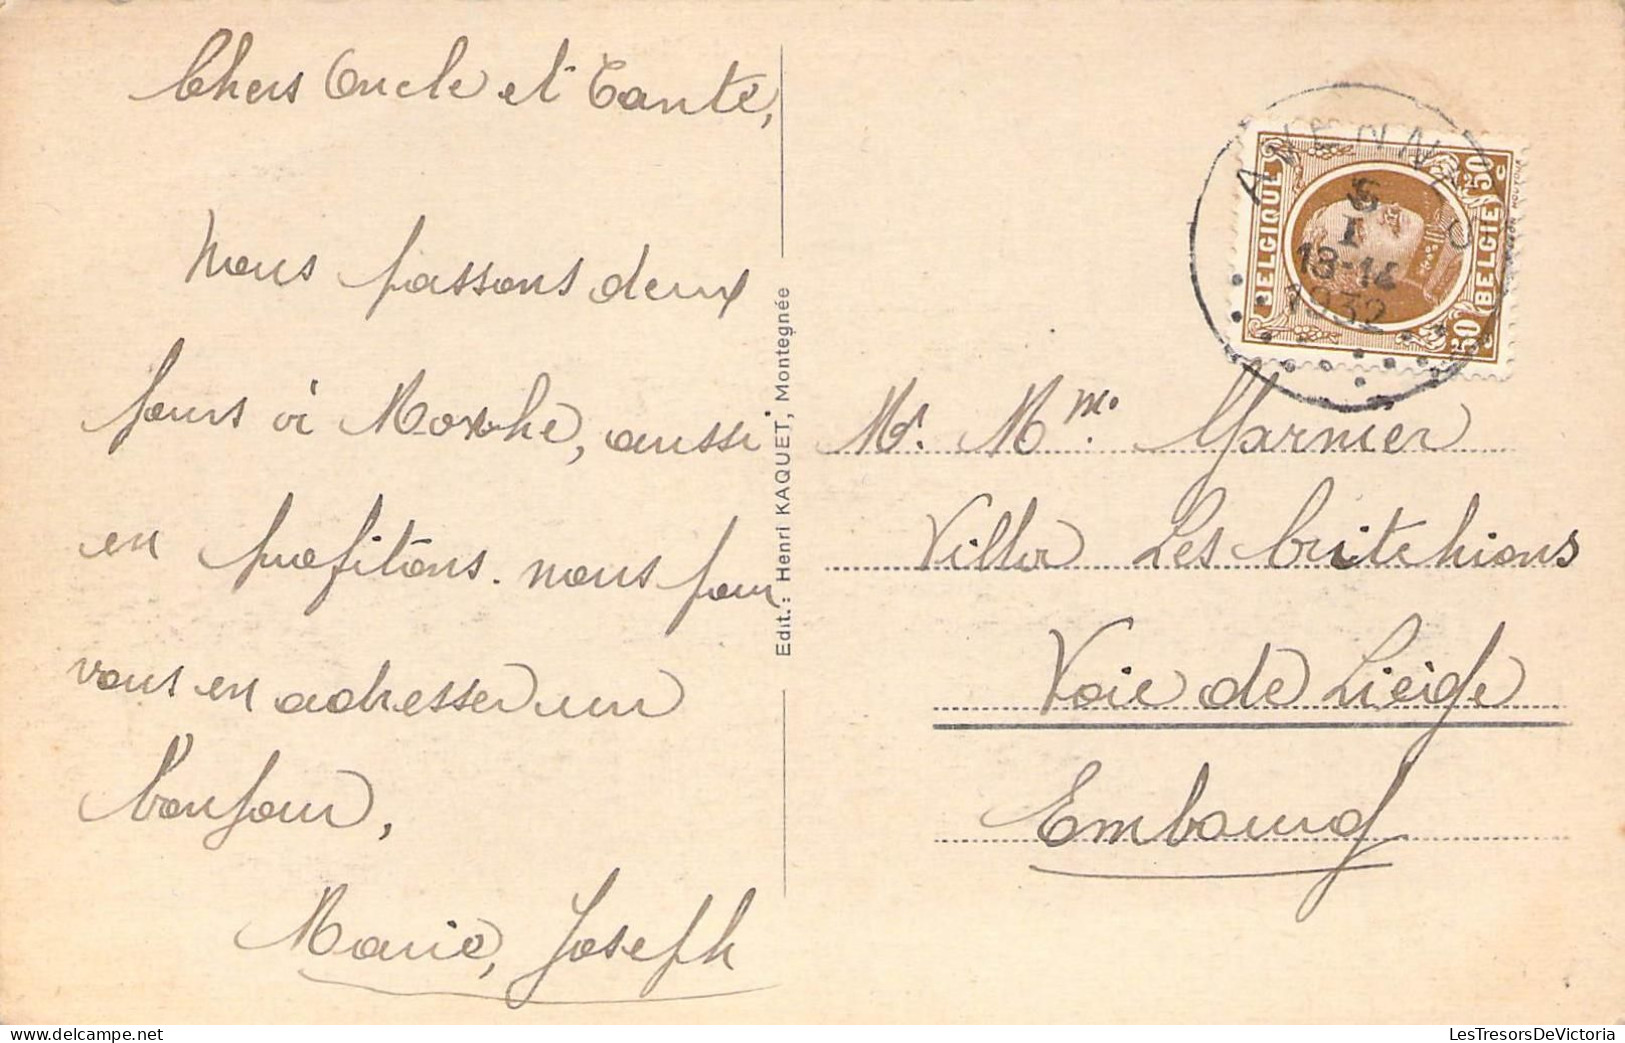 Chers Oncle et Tante,
Nous passons deux
jours à Moxhe, aussi
en profitons-nous pour
vous en adresser un
bonjour,
Marie, Joseph
Edit.: Henri KAQUET, Montegnée
AVENNES
13-14
1932
BELGIQUE
50 c
BELGIE
50 c
Mr. Mme. Garnier
Villa Les britchions
Voie de Liège
Embourg
LesTresorsDeVictoria